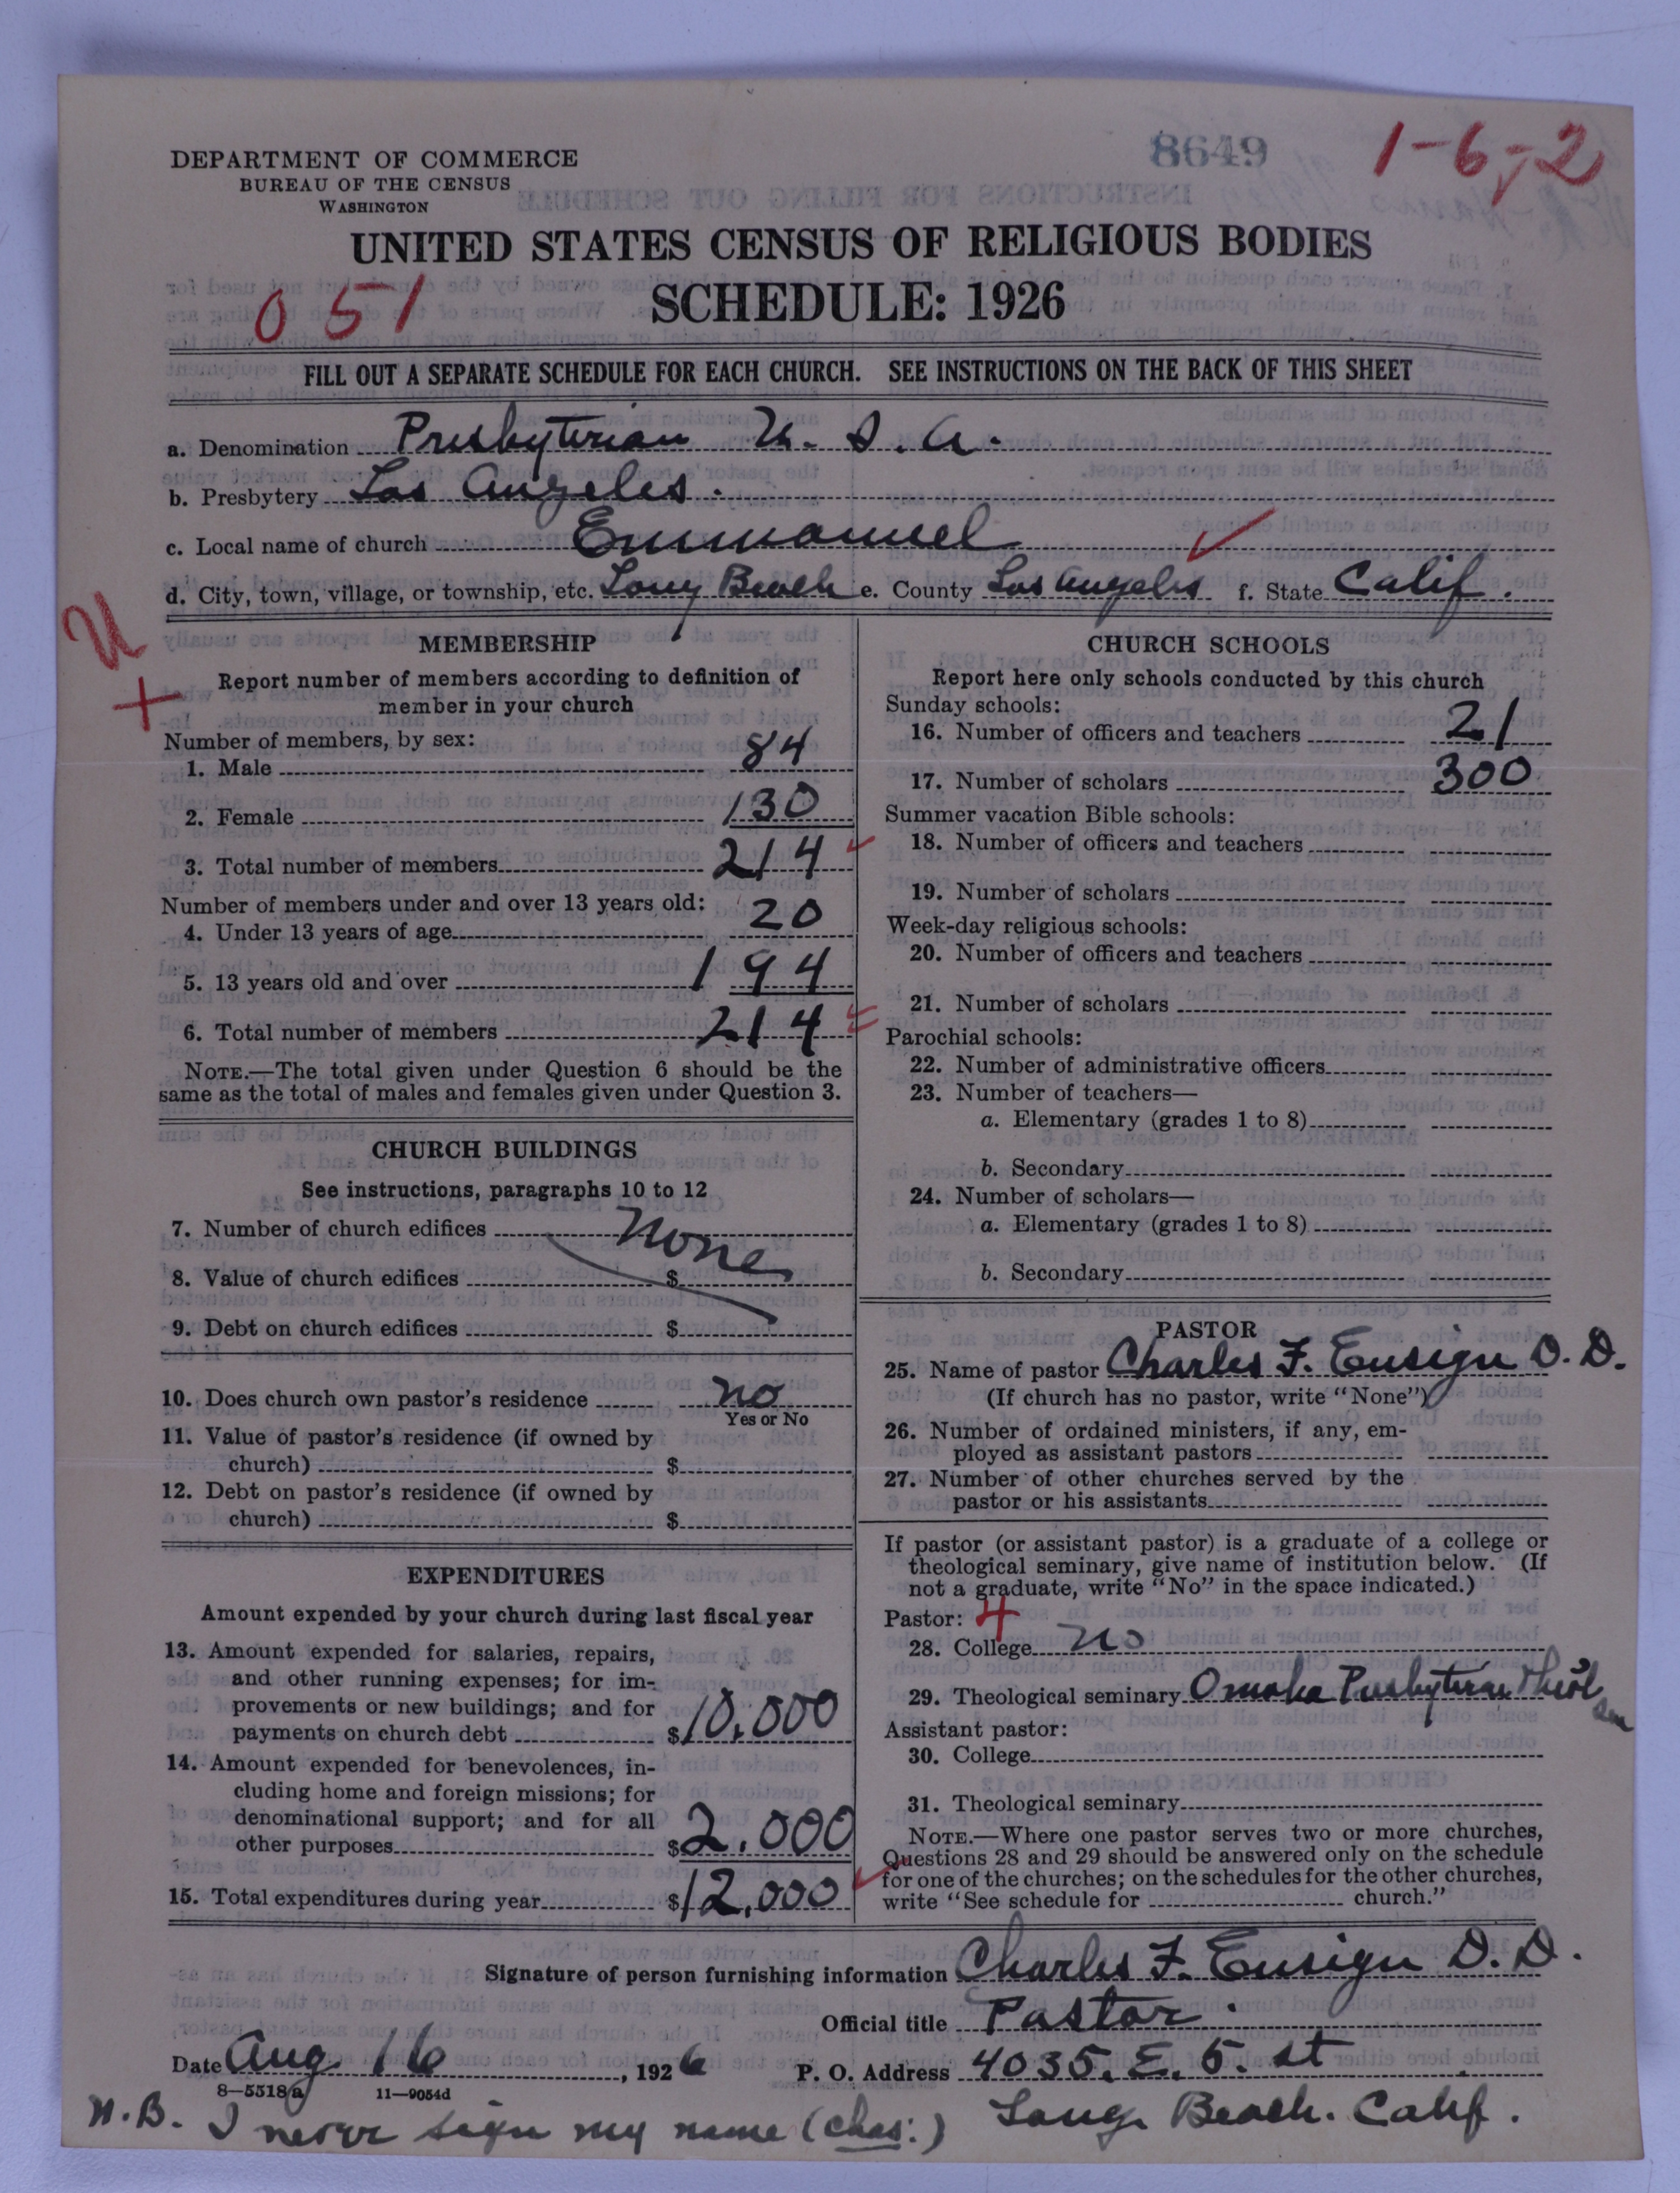 8649
1-6-2
DEPARTMENT OF COMMERCE
BUREAU OF THE CENSUS
WASHINGTON
UNITED STATES CENSUS OF RELIGIOUS BODIES
051
SCHEDULE: 1926
FILL OUT A SEPARATE SCHEDULE FOR EACH CHURCH. SEE INSTRUCTIONS ON THE BACK OF THIS SHEET
a. Denomination Presbyterian U. S. A.
b. Presbytery Los Angeles.
c. Local name of church Emmanuel
d. City, town, village, or township, etc. Long Beach e. County Los Angeles f. State Calif.
U
+
MEMBERSHIP
Report number of members according to definition of
member in your church
Number of members, by sex:
1. Male 84
2. Female 130
3. Total number of members 214
Number of members under and over 13 years old:
4. Under 13 years of age 20
5. 13 years old and over 194
6. Total number of members 214
NOTE.—The total given under Question 6 should be the
same as the total of males and females given under Question 3.
CHURCH BUILDINGS
See instructions, paragraphs 10 to 12
7. Number of church edifices None
8. Value of church edifices $
9. Debt on church edifices $
10. Does church own pastor's residence no
Yes or No
11. Value of pastor's residence (if owned by
church) $
12. Debt on pastor's residence (if owned by
church) $
EXPENDITURES
Amount expended by your church during last fiscal year
13. Amount expended for salaries, repairs,
and other running expenses; for im-
provements or new buildings; and for
payments on church debt $10,000
14. Amount expended for benevolences, in-
cluding home and foreign missions; for
denominational support; and for all
other purposes $2,000
15. Total expenditures during year $12,000
CHURCH SCHOOLS
Report here only schools conducted by this church
Sunday schools:
16. Number of officers and teachers 21
17. Number of scholars 300
Summer vacation Bible schools:
18. Number of officers and teachers
19. Number of scholars
Week-day religious schools:
20. Number of officers and teachers
21. Number of scholars
Parochial schools:
22. Number of administrative officers
23. Number of teachers—
a. Elementary (grades 1 to 8)
b. Secondary
24. Number of scholars—
a. Elementary (grades 1 to 8)
b. Secondary
PASTOR
25. Name of pastor Charles F. Ensign D. D.
(If church has no pastor, write "None")
26. Number of ordained ministers, if any, em-
ployed as assistant pastors
27. Number of other churches served by the
pastor or his assistants
If pastor (or assistant pastor) is a graduate of a college or
theological seminary, give name of institution below. (If
not a graduate, write "No" in the space indicated.)
Pastor: 4
28. College No
29. Theological seminary Omaha Presbyterian Theol Sem
Assistant pastor:
30. College
31. Theological seminary
NOTE.—Where one pastor serves two or more churches,
Questions 28 and 29 should be answered only on the schedule
for one of the churches; on the schedules for the other churches,
write "See schedule for church."
Signature of person furnishing information Charles F. Ensign D. D.
Official title Pastor.
Date Aug 16, 1926 P. O. Address 4035. E. 5. st
8—5518a 11—9054d
Long Beach. Calif.
N.B. I never sign my name (Chas:)